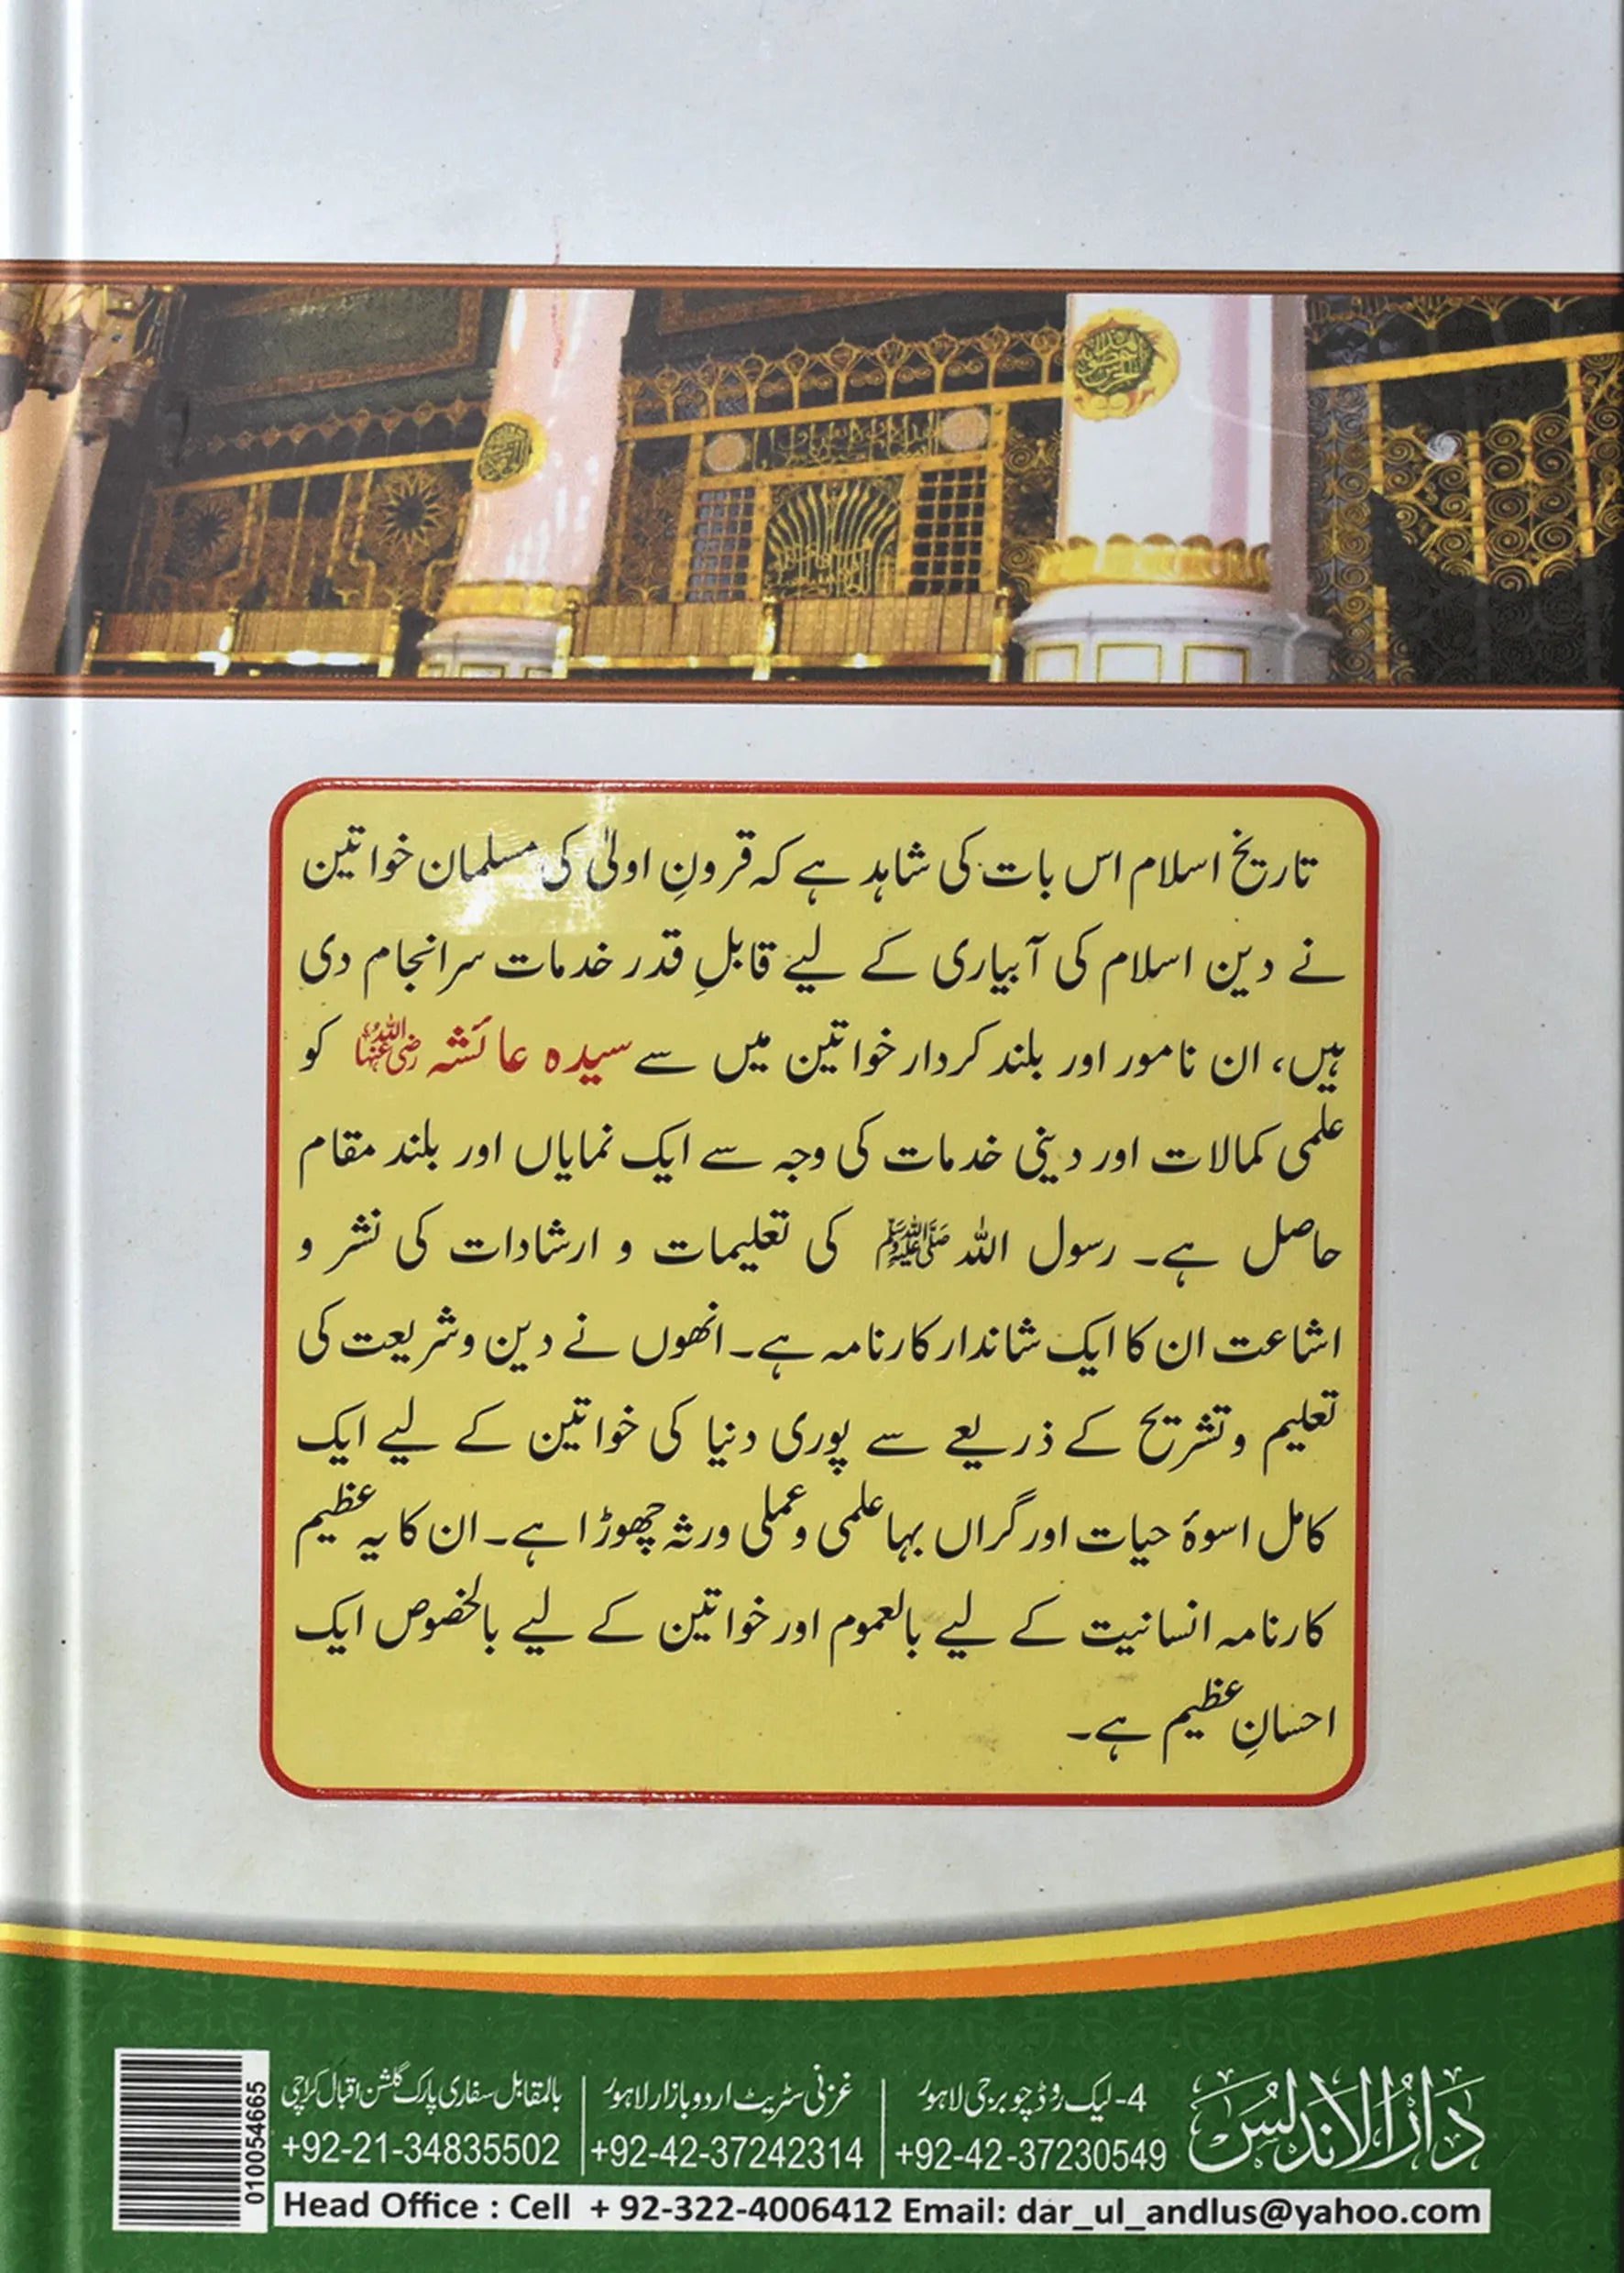 تاریخ اسلام اس بات کی شاہد ہے کہ قرونِ اولیٰ کی مسلمان خواتین
نے دین اسلام کی آبیاری کے لیے قابلِ قدر خدمات سرانجام دی
ہیں، ان نامور اور بلند کردار خواتین میں سے سیدہ عائشہ رضی اللہ عنہا کو
علمی کمالات اور دینی خدمات کی وجہ سے ایک نمایاں اور بلند مقام
حاصل ہے۔ رسول اللہ ﷺ کی تعلیمات و ارشادات کی نشر و
اشاعت ان کا ایک شاندار کارنامہ ہے۔ انھوں نے دین و شریعت کی
تعلیم و تشریح کے ذریعے سے پوری دنیا کی خواتین کے لیے ایک
کامل اسوۂ حیات اور گراں بہا علمی و عملی ورثہ چھوڑا ہے۔ ان کا یہ عظیم
کارنامہ انسانیت کے لیے بالعموم اور خواتین کے لیے بالخصوص ایک
احسانِ عظیم ہے۔
دارالاندلس
4-لیک روڈ چوبرجی لاہور
+92-42-37230549
غزنی سٹریٹ اردو بازار لاہور
+92-42-37242314
بالمقابل سفاری پارک گلشن اقبال کراچی
+92-21-34835502
Head Office : Cell + 92-322-4006412 Email: dar_ul_andlus@yahoo.com
010054665